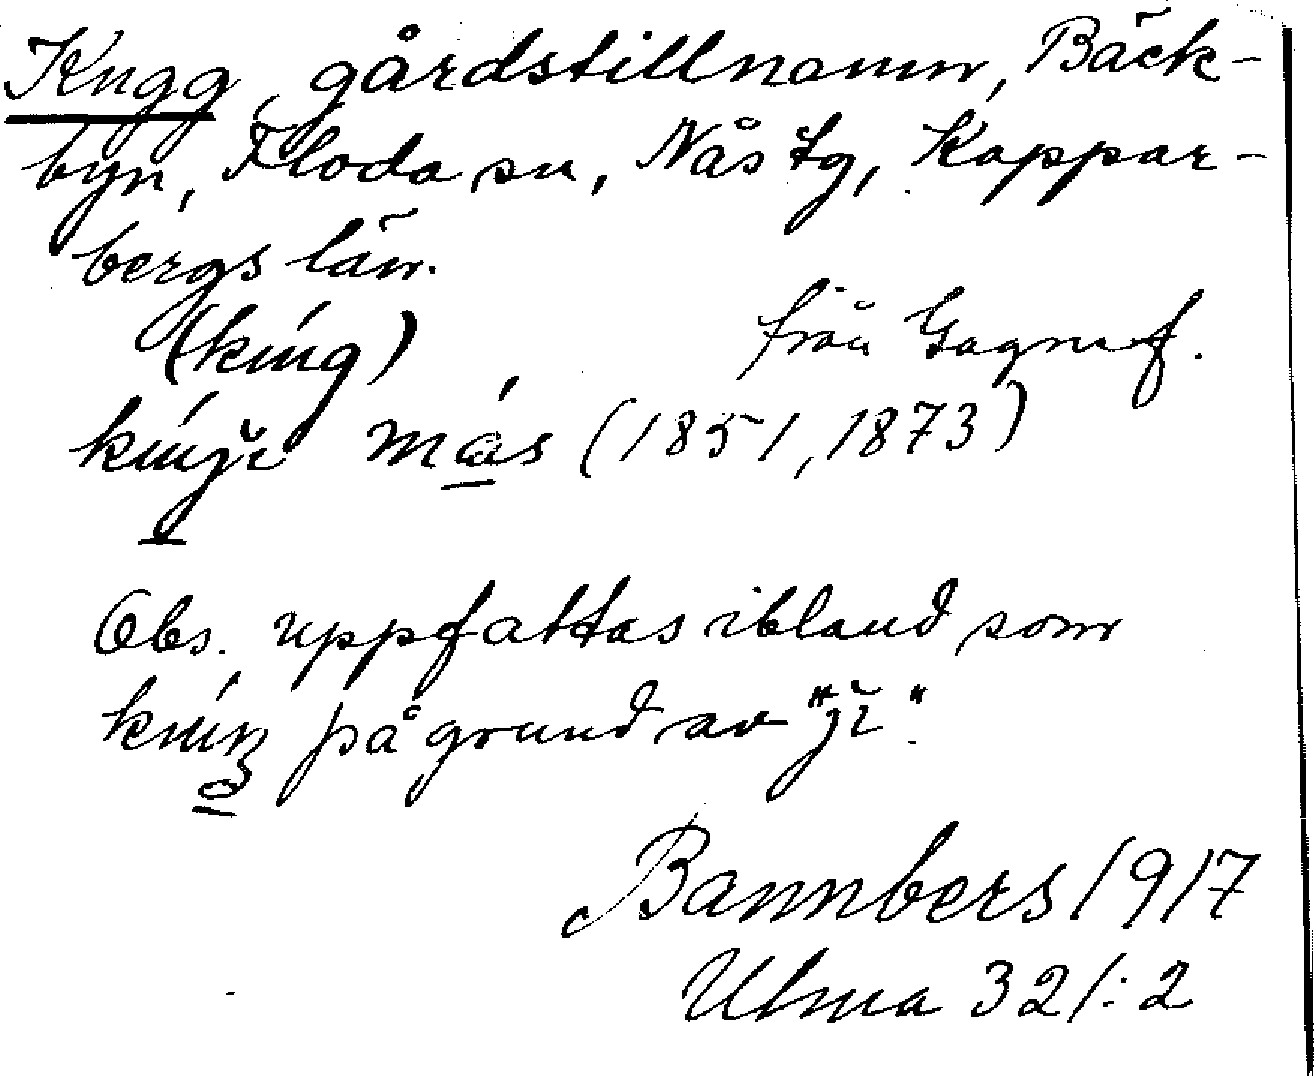 Kngg, gårdstillnamn, Bäck-
byn, Floda sn, Nås tg, Koppar-
bergs län.
(king) från Gagnef.
mås (1851, 1873)
Obs. uppfattas ibland som
på grund av "ji".
Bannbers 1917
Ulma 321:2